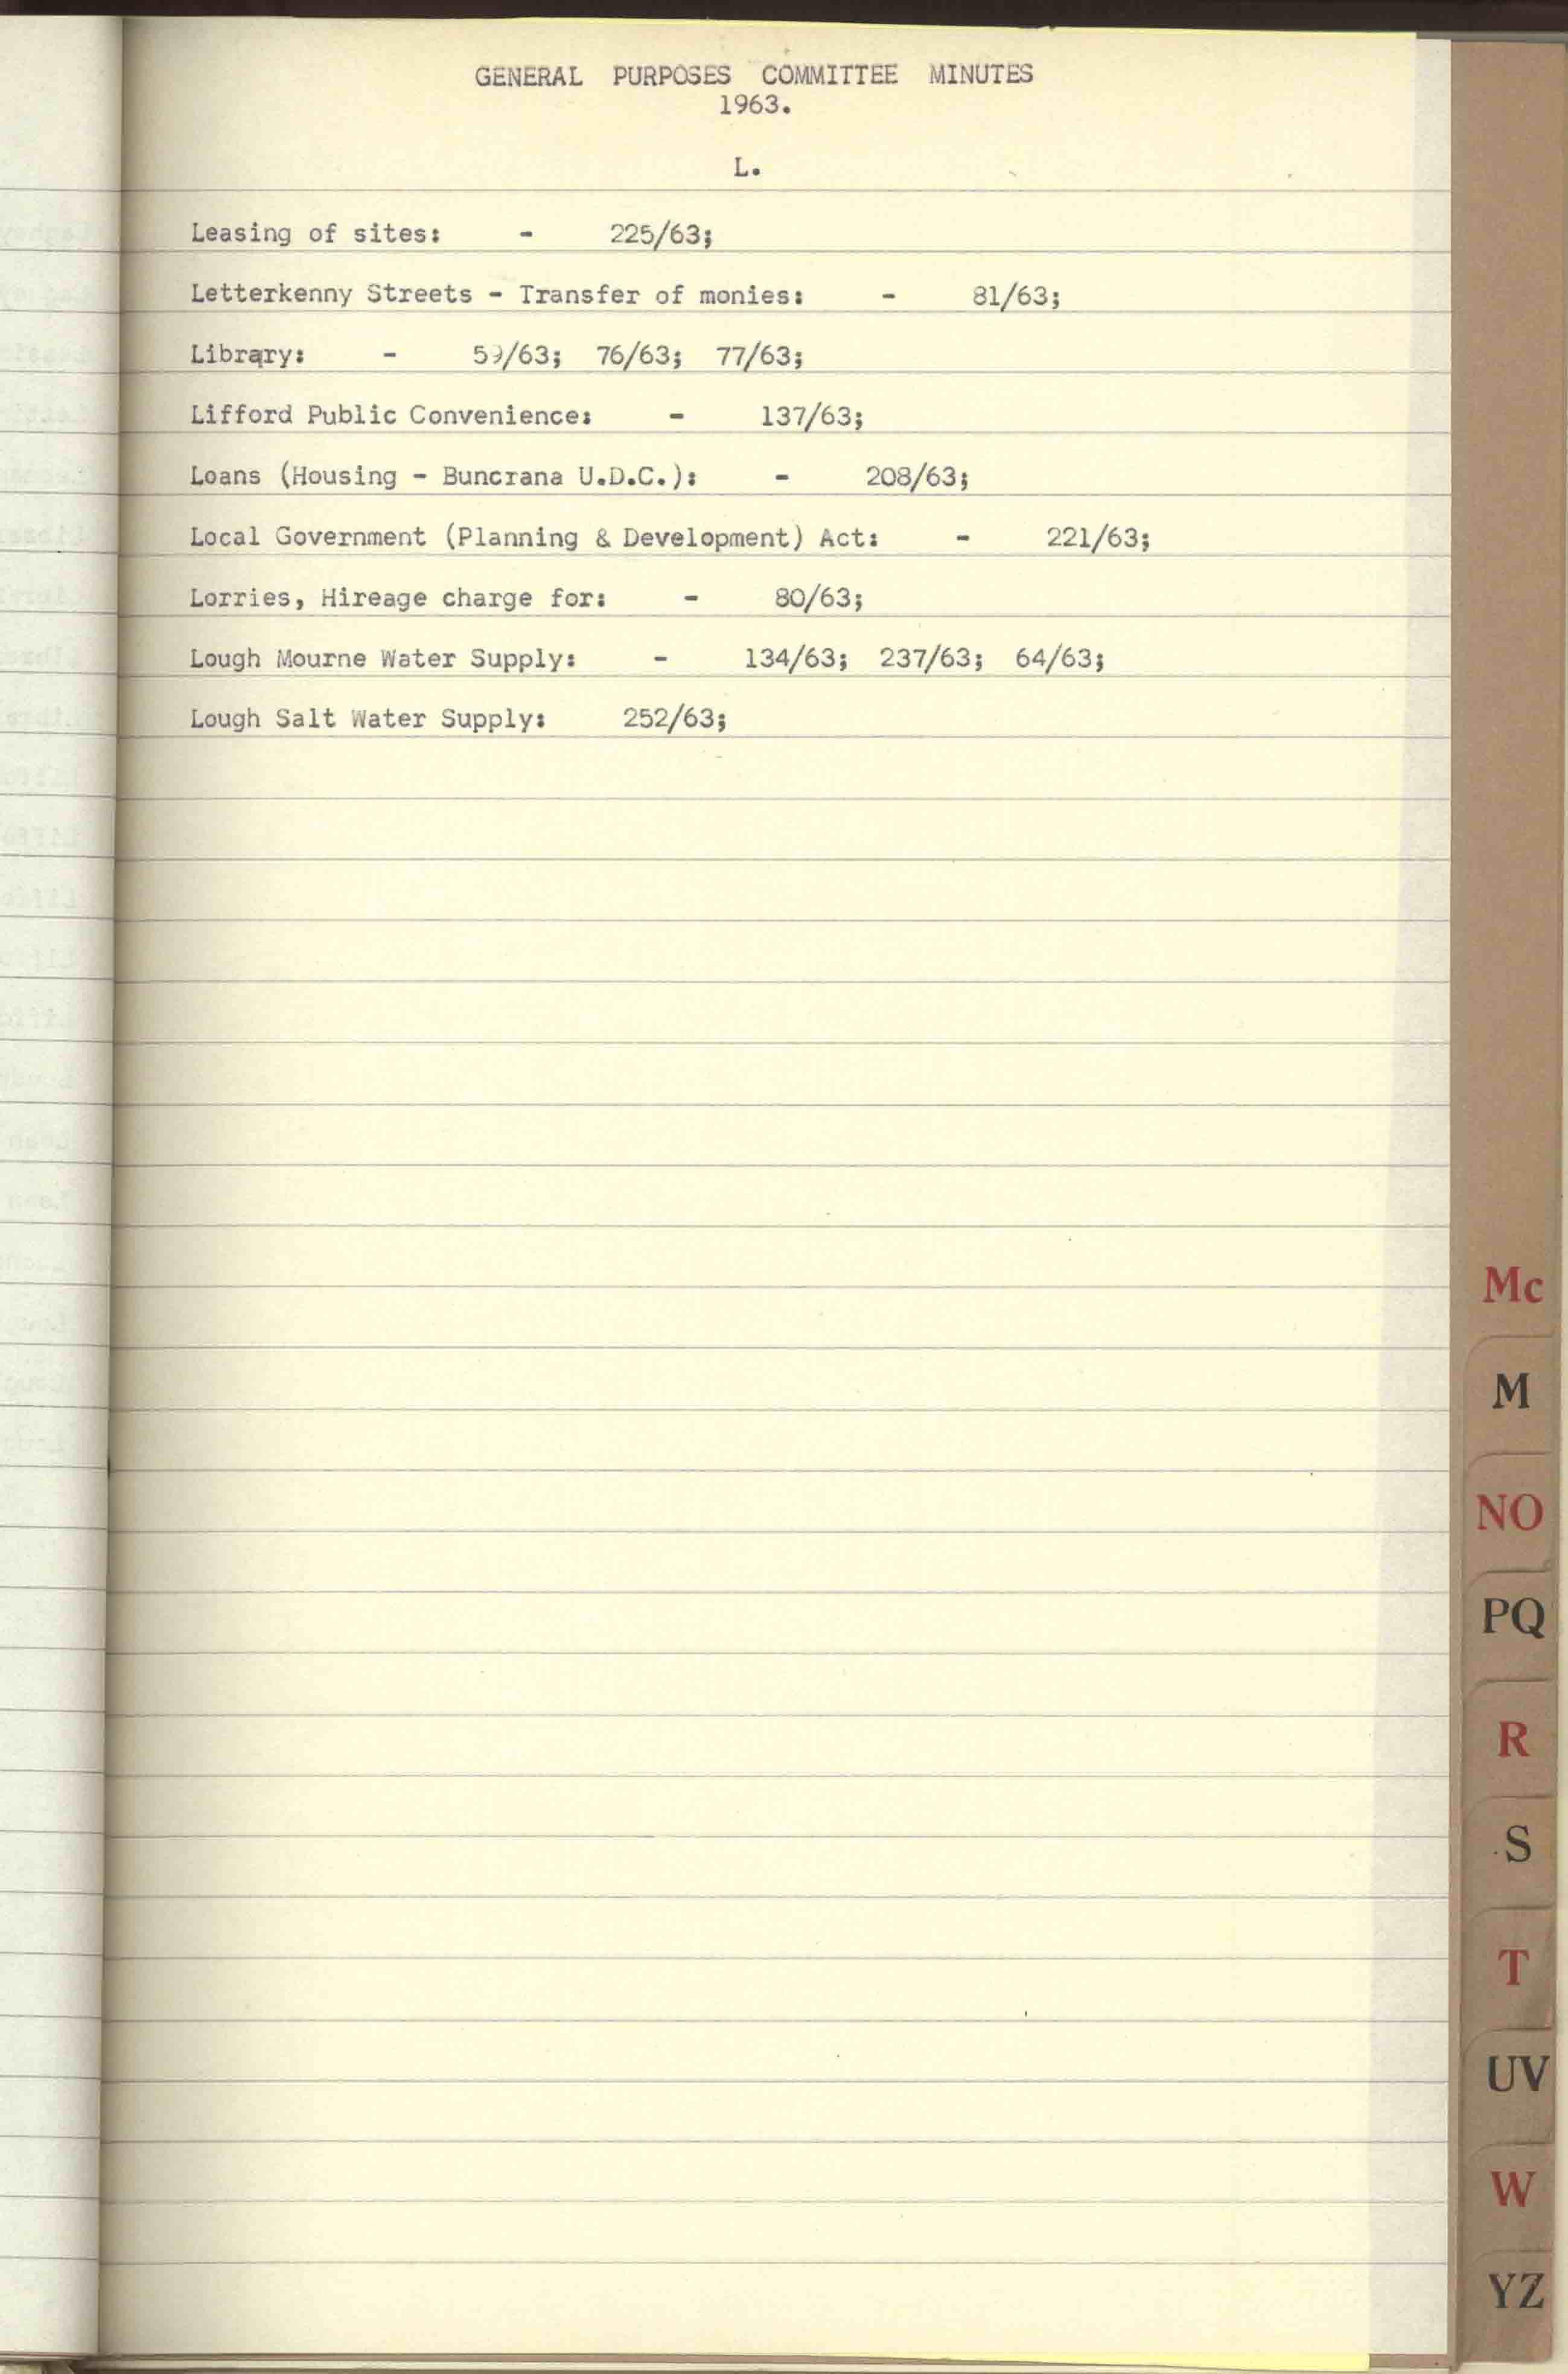 GENERAL PURPOSES COMMITTEE MINUTES
1963.
L.
Leasing of sites: - 225/63;
Letterkenny Streets - Transfer of monies: - 81/63;
Library: - 59/63; 76/63; 77/63;
Lifford Public Convenience: - 137/63;
Loans (Housing - Buncrana U.D.C.): - 208/63;
Local Government (Planning & Development) Act: - 221/63;
Lorries, Hireage charge for: - 80/63;
Lough Mourne Water Supply: - 134/63; 237/63; 64/63;
Lough Salt Water Supply: 252/63;
Mc
M
NO
PQ
R
S
T
UV
W
YZ